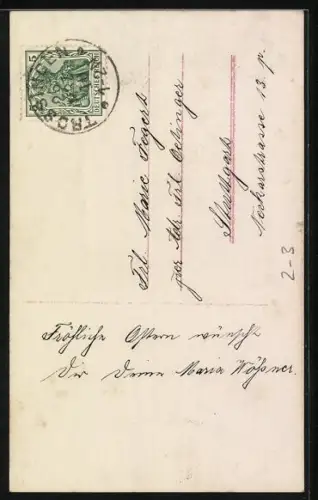 TROSSINGEN
5 5
DEUTSCHES REICH
Frl. Marie Fegert
per Adr. Frl. Oelinger
Stuttgart
Neckarstrasse 13. p.
2-3
Fröhliche Ostern wünscht
Dir Deine Maria Wößner.